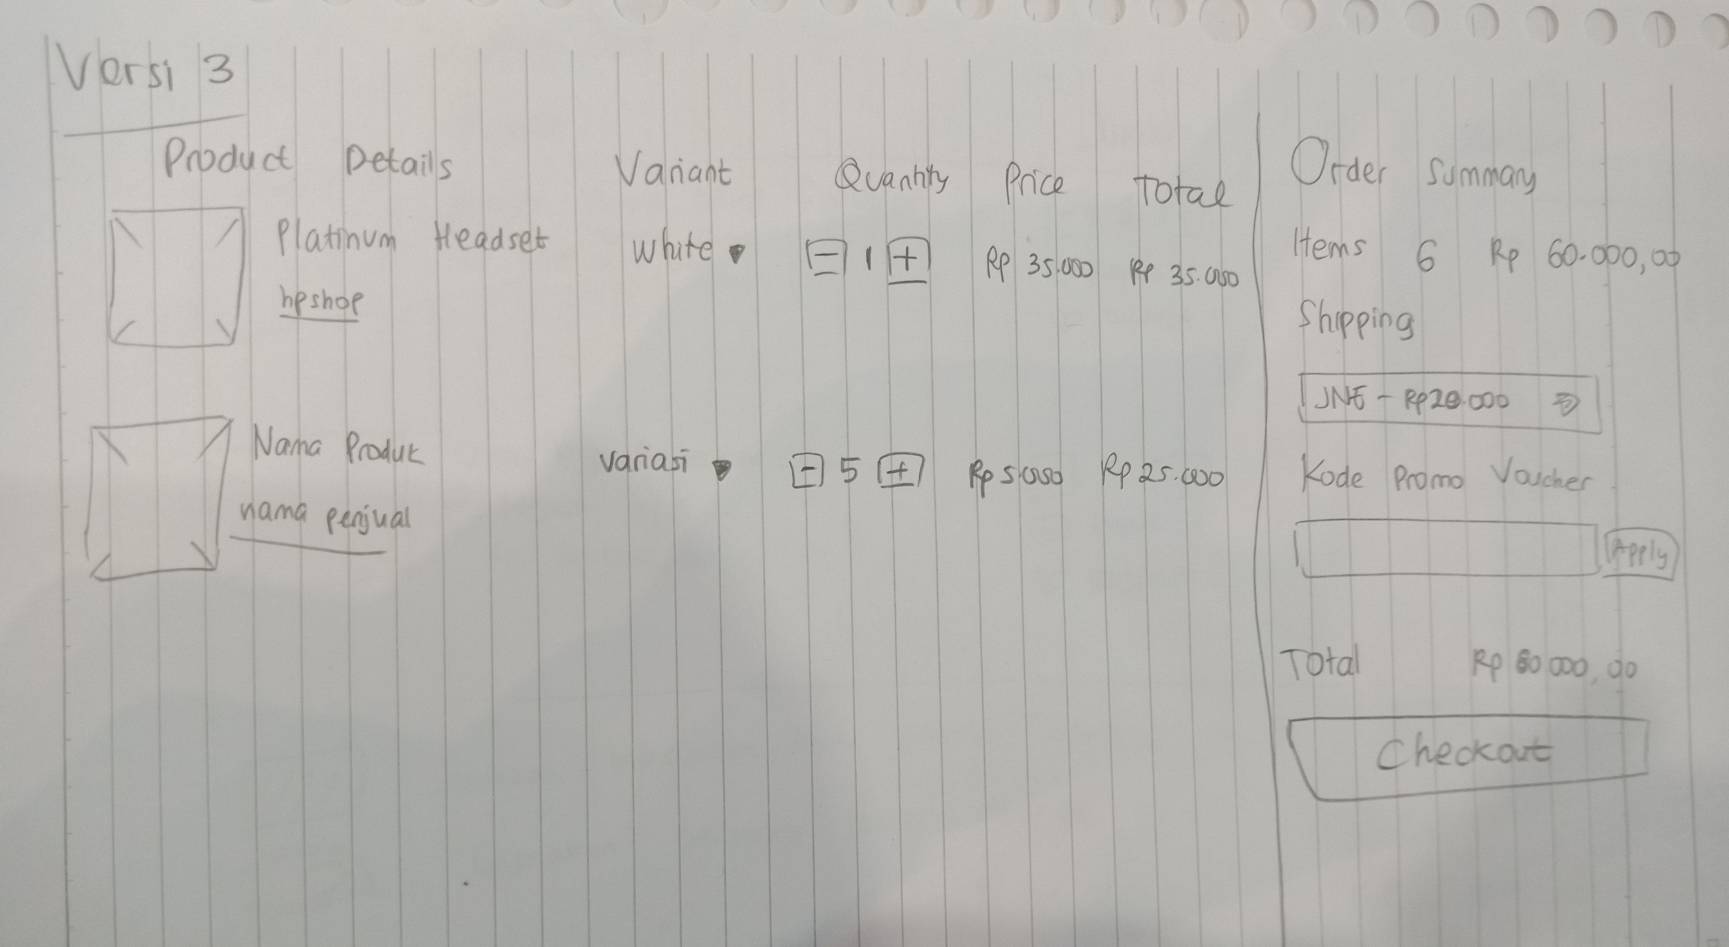 Versi 3
Product Details Variant Quantity Price Total
Platinum Headset White - 1 + Rp 35.000 Rp 35.000
hpshop
Nama Produk variasi - 5 + Rp 5.000 Rp 25.000
nama penjual
Order Summary
Items 6 Rp 60.000,00
Shipping
JNE - Rp 20.000
Kode Promo Voucher
Apply
Total Rp 80 000,00
Checkout